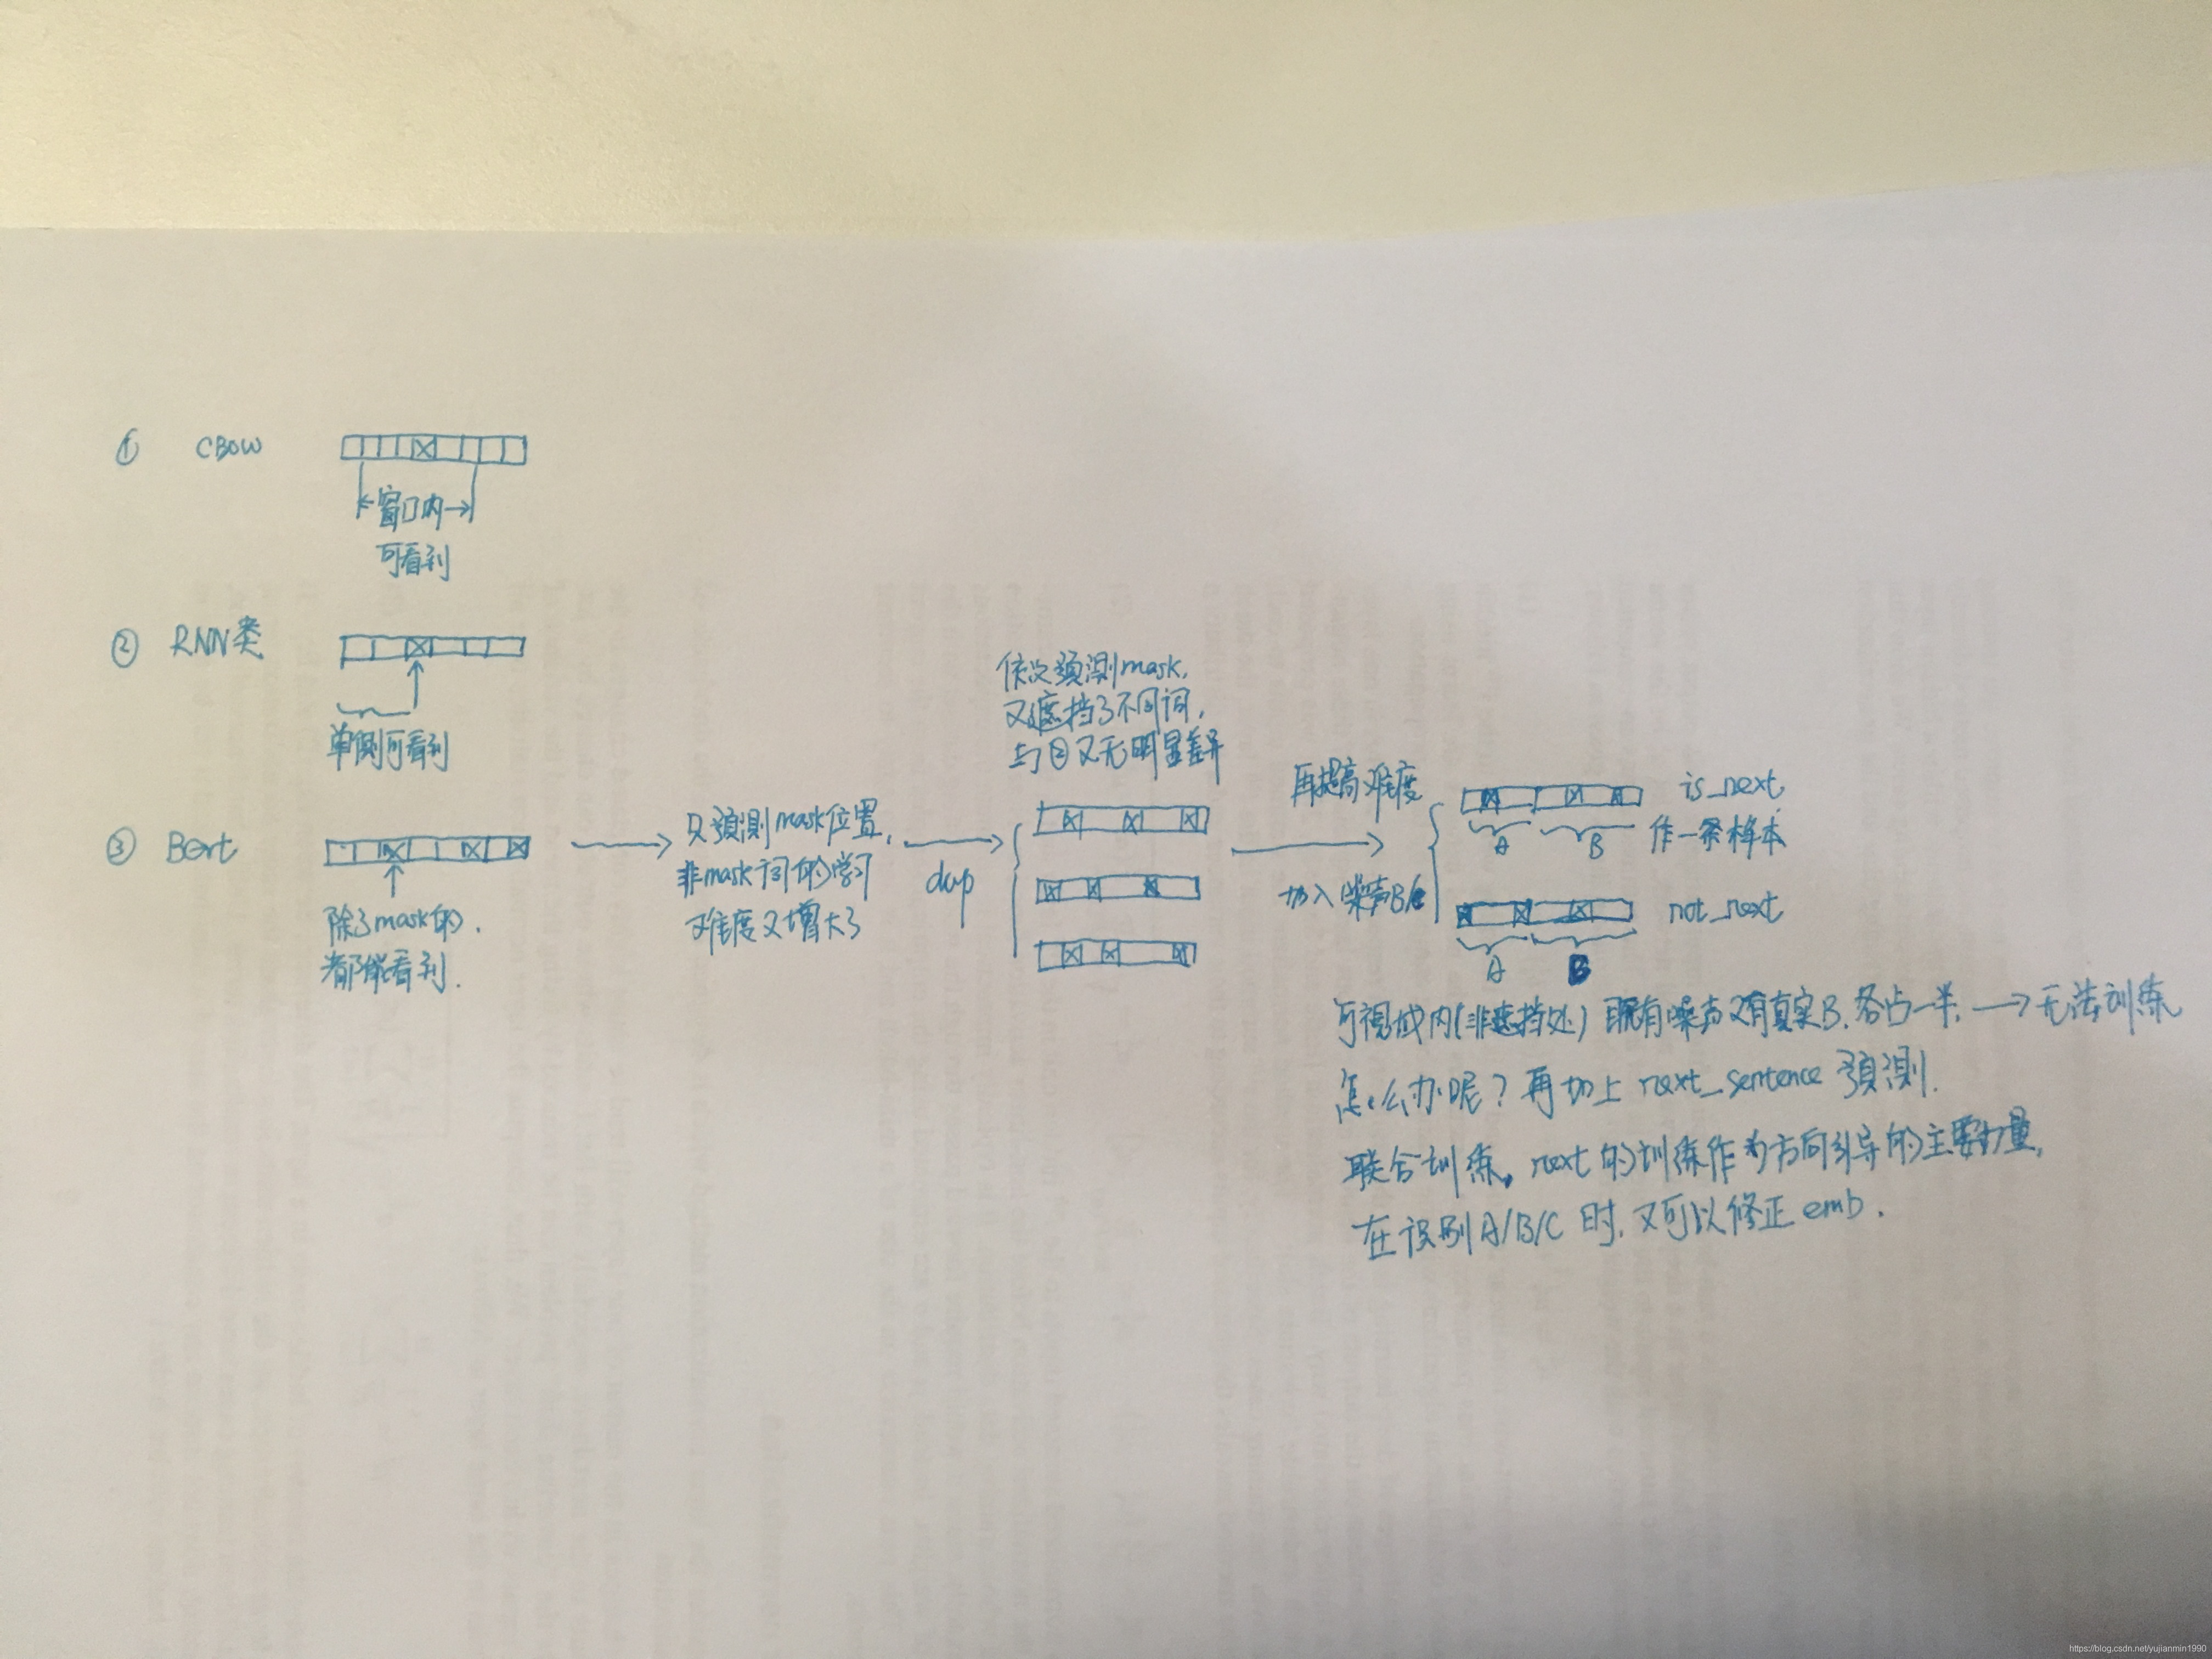 ① CBOW
窗口内
可看到
② RNN类
单侧可看到
③ Bert
除了mask的.
都能看到.
只预测mask位置,
非mask词的学习
难度又增大了
dup
依次预测mask,
又遮挡了不同词,
与②又无明显差异
再提高难度
加入噪声B/C
is_next
A
B
作一条样本
not_next
A
B
可视域内(非遮挡处)既有噪声又有真实B.各占一半. → 无法训练
怎么办呢?再加上 next_sentence 预测.
联合训练, next的训练作为方向引导的主要力量,
在识别A/B/C 时.又可以修正 emb.
https://blog.csdn.net/yujianmin1990